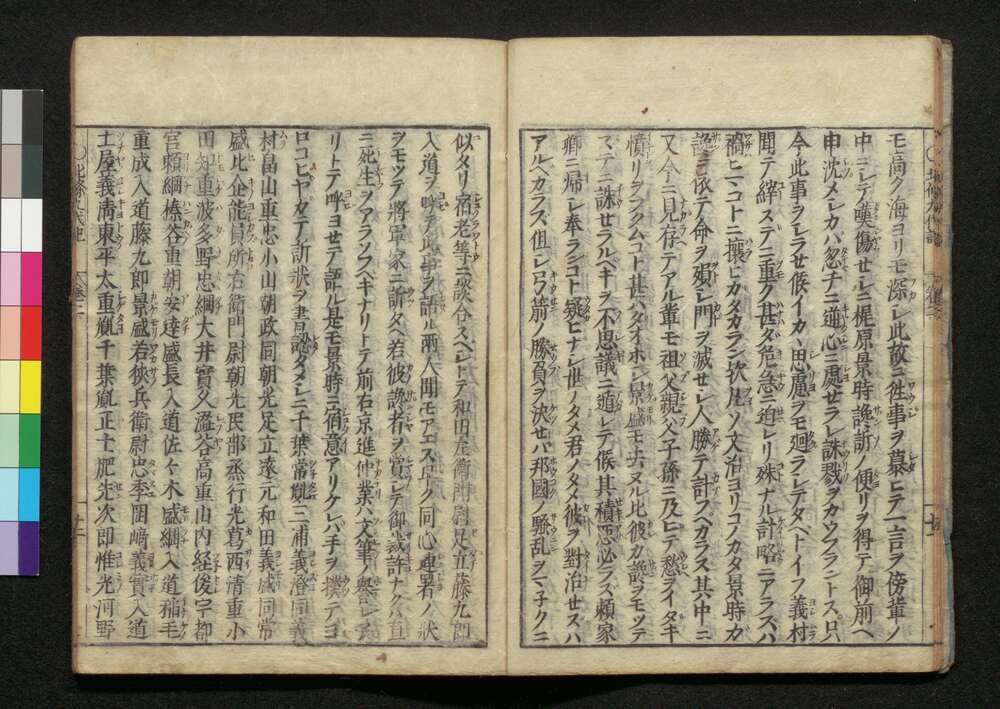 モ高ク海ヨリモ深シ此故ニ徃事ヲ慕ヒテ一言ヲ傍輩ノ
中ニシテ嘆傷セシニ梶原景時讒訴ノ便リヲ得テ御前ヘ
申沈メシカハ忽チニ逆心ニ處セラレ誅戮ヲカウフラントス只
今此事ヲシラセ候イカヽ思慮ヲモ廻ラシテタベトイフ義村
聞テ綷ステニ重ク甚タ危急ニ迫レリ殊ナル計略ニアラスハ
禍ヒコトニ攘ヒカタカラン欤凡ソ文治ヨリコノカタ景時カ
讒ニ依テ命ヲ殞シ門ヲ滅セシ人勝テ計フヘカラス其中ニ
又今ニ見存テアル輩モ祖父親父子孫ニ及ヒテ愁ヲイタキ
憤リヲフクムコト甚ハタイホシ景盛モ去ヌル比彼カ讒ヲモツテ
マテニ誅セラルベキヲ不思議ニ遁レテ候其積悪必ス頼家
卿ニ帰シ奉ランコト疑ヒナシ世ノタメ君ノタメ彼ヲ對治セスハ
アルヘカラス但シ弓箭ノ勝負ヲ決セバ邦國ノ騒乱ヲマ子クニ
似タリ宿老等ニ談合スヘシトテ和田左衛門尉足立藤九郎
入道ヲ呼テ此事ヲ語ル両人聞モアエス早ク同心連署ノ状
ヲモツテ將軍家ニ訴タヘ若彼讒者ヲ賞シテ御裁許ナクハ直
ニ死生ヲアラソフヘキナリトテ前右京進仲業ハ文筆ノ譽シア
リトテ呼ヨセテ語ル是モ景時ニ宿意アリケレバ手ヲ撲テヨ
ロコヒヤカテ訴状ヲ書認タメシニ千葉常胤三浦義澄同義
村畠山重忠小山朝政同朝光足立遠元和田義盛同常
盛比企能員所右衛門尉朝光民部丞行光葛西清重小
田知重波多野忠綱大井實久澁谷高重山内経俊宇都
宮頼綱榛谷重朝安達盛長入道佐々木盛綱入道稲毛
重成入道藤九郎景盛若狹兵衛尉忠季岡﨑義實入道
土屋義清東平太重胤千葉胤正土肥先次郎惟光河野